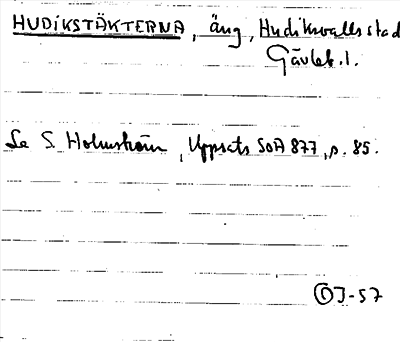 HUDIKSTÄKTERNA, äng, Hudiksvalls stad
Gävleb. l.
Se S. Holmström, Uppsats SOA 877, s. 85.
OJ-57